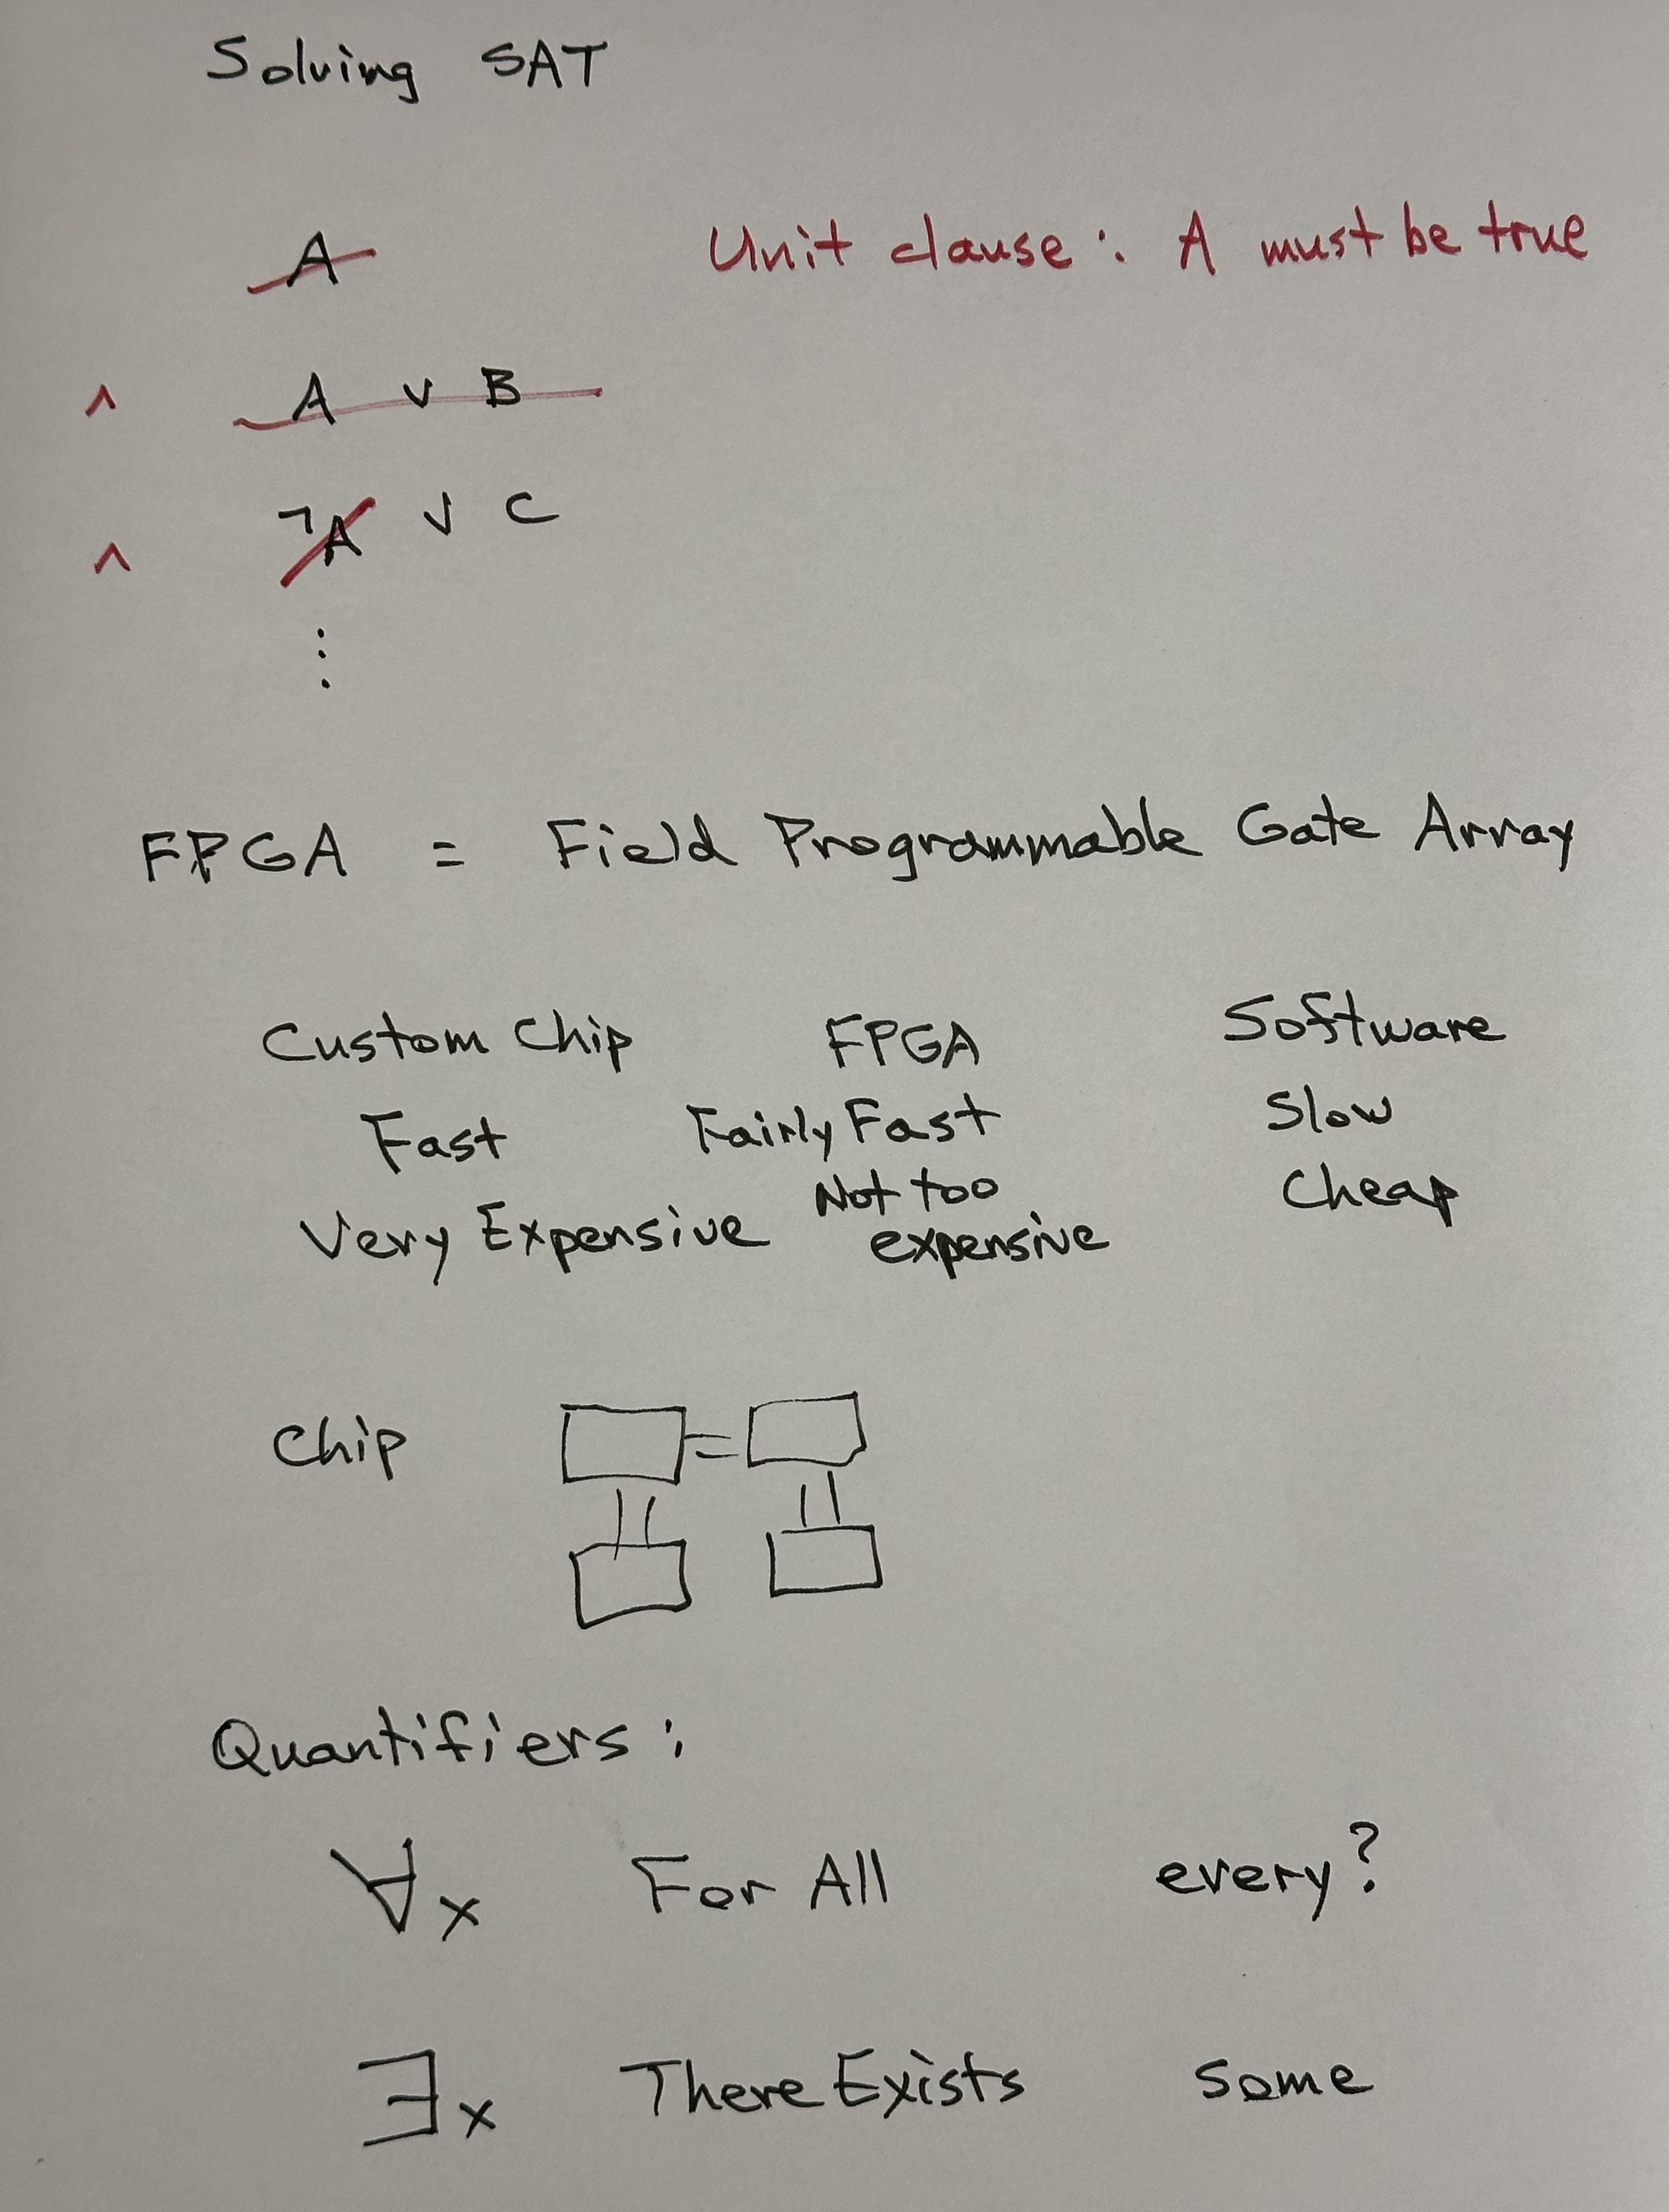 Solving SAT
A Unit clause : A must be true
∧ A ∨ B
∧ ¬A ∨ C
⋮
FPGA = Field Programmable Gate Array
Custom Chip FPGA Software
Fast Fairly Fast Slow
Very Expensive Not too expensive Cheap
Chip
Quantifiers :
∀x For All every?
∃x There Exists some